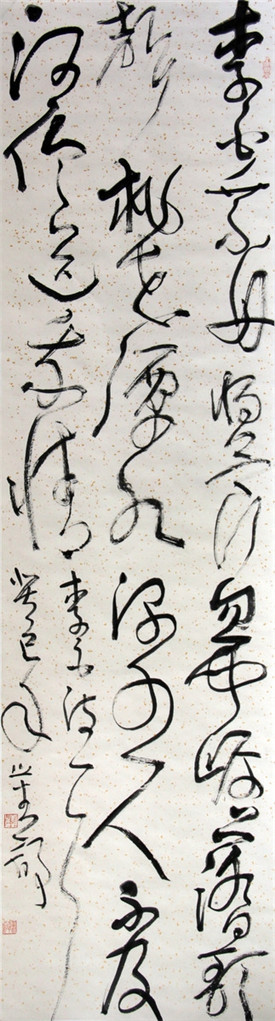 李白乘舟將欲行忽聞岸上踏歌
聲桃花潭水深千尺不及
汪倫送我情
李白詩一首
癸巳年